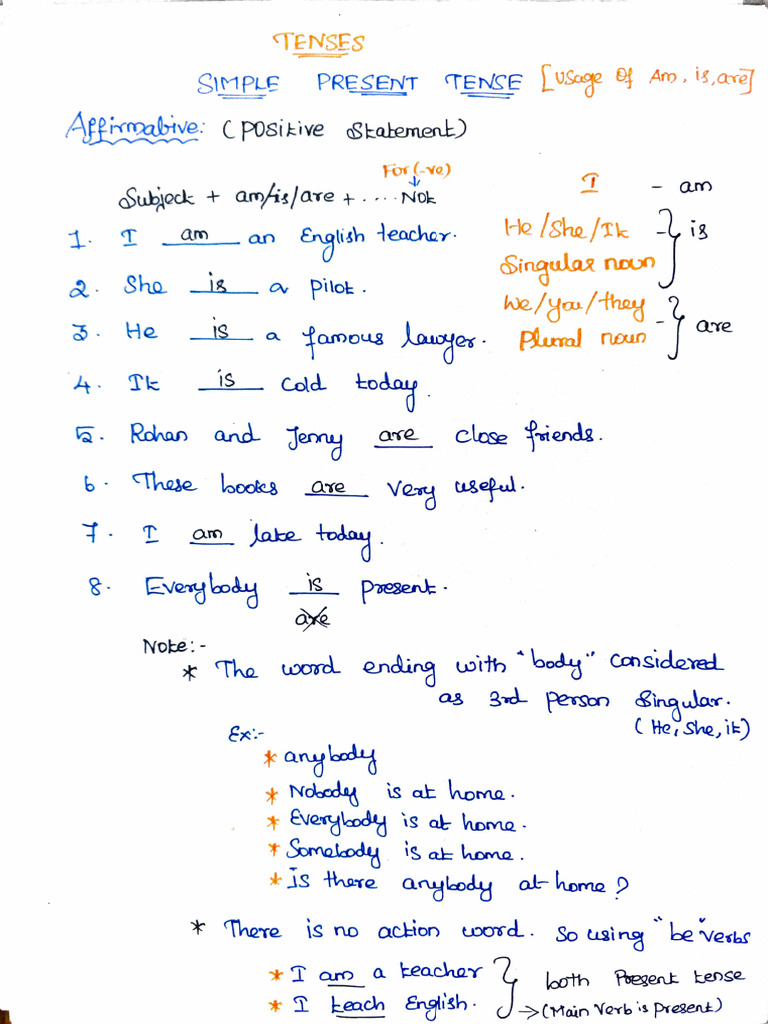 TENSES
SIMPLE PRESENT TENSE [Usage Of Am, is, are]
Affirmative: (Positive Statement)
For (-ve)
↓
Subject + am/is/are + .... Not
I - am
He/She/It
Singular noun
- } is
We/you/they
Plural noun
- } are
1. I am an English teacher.
2. She is a pilot.
3. He is a famous lawyer.
4. It is cold today.
5. Rohan and Jenny are close friends.
6. These books are very useful.
7. I am late today.
8. Everybody is present.
are
Note:-
* The word ending with "body" considered
as 3rd person singular.
(He, She, it)
Ex:-
* anybody
* Nobody is at home.
* Everybody is at home.
* Somebody is at home.
* is there anybody at home?
* There is no action word. so using "be" verbs
* I am a teacher
* I teach English.
} both Present tense
→ (Main Verb is Present)